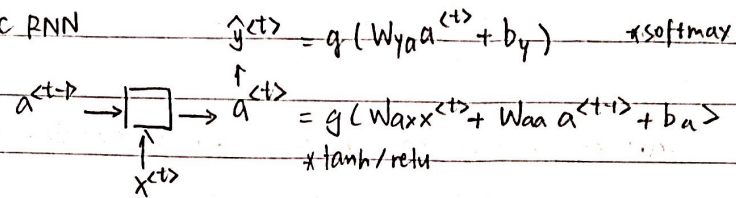 C RNN ŷ<t> = g(Wya a<t> + by) *softmax
↑
a<t-1> → □ → a<t> = g(Wax x<t> + Waa a<t-1> + ba>
↑ *tanh/relu
x<t>